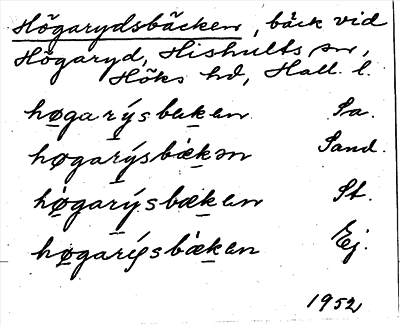 Högarydsbäcken, bäck vid
Högaryd, Hishults sn,
Höks hd, Hall. l.
høgarýsbækan Sa.
høgarýsbækan Sand.
høgarýsbækan St.
høgarýsbækan Ej.
1952